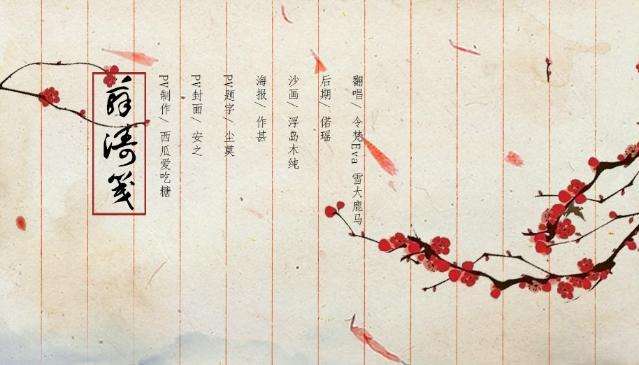 翻唱/ 令梵Eva 雪大鹿马
后期/ 偌瑶
沙画/ 浮岛木纯
海报/ 作甚
PV题字/ 尘莫
PV封面/ 安之
PV制作/ 西瓜爱吃糖
薛涛笺